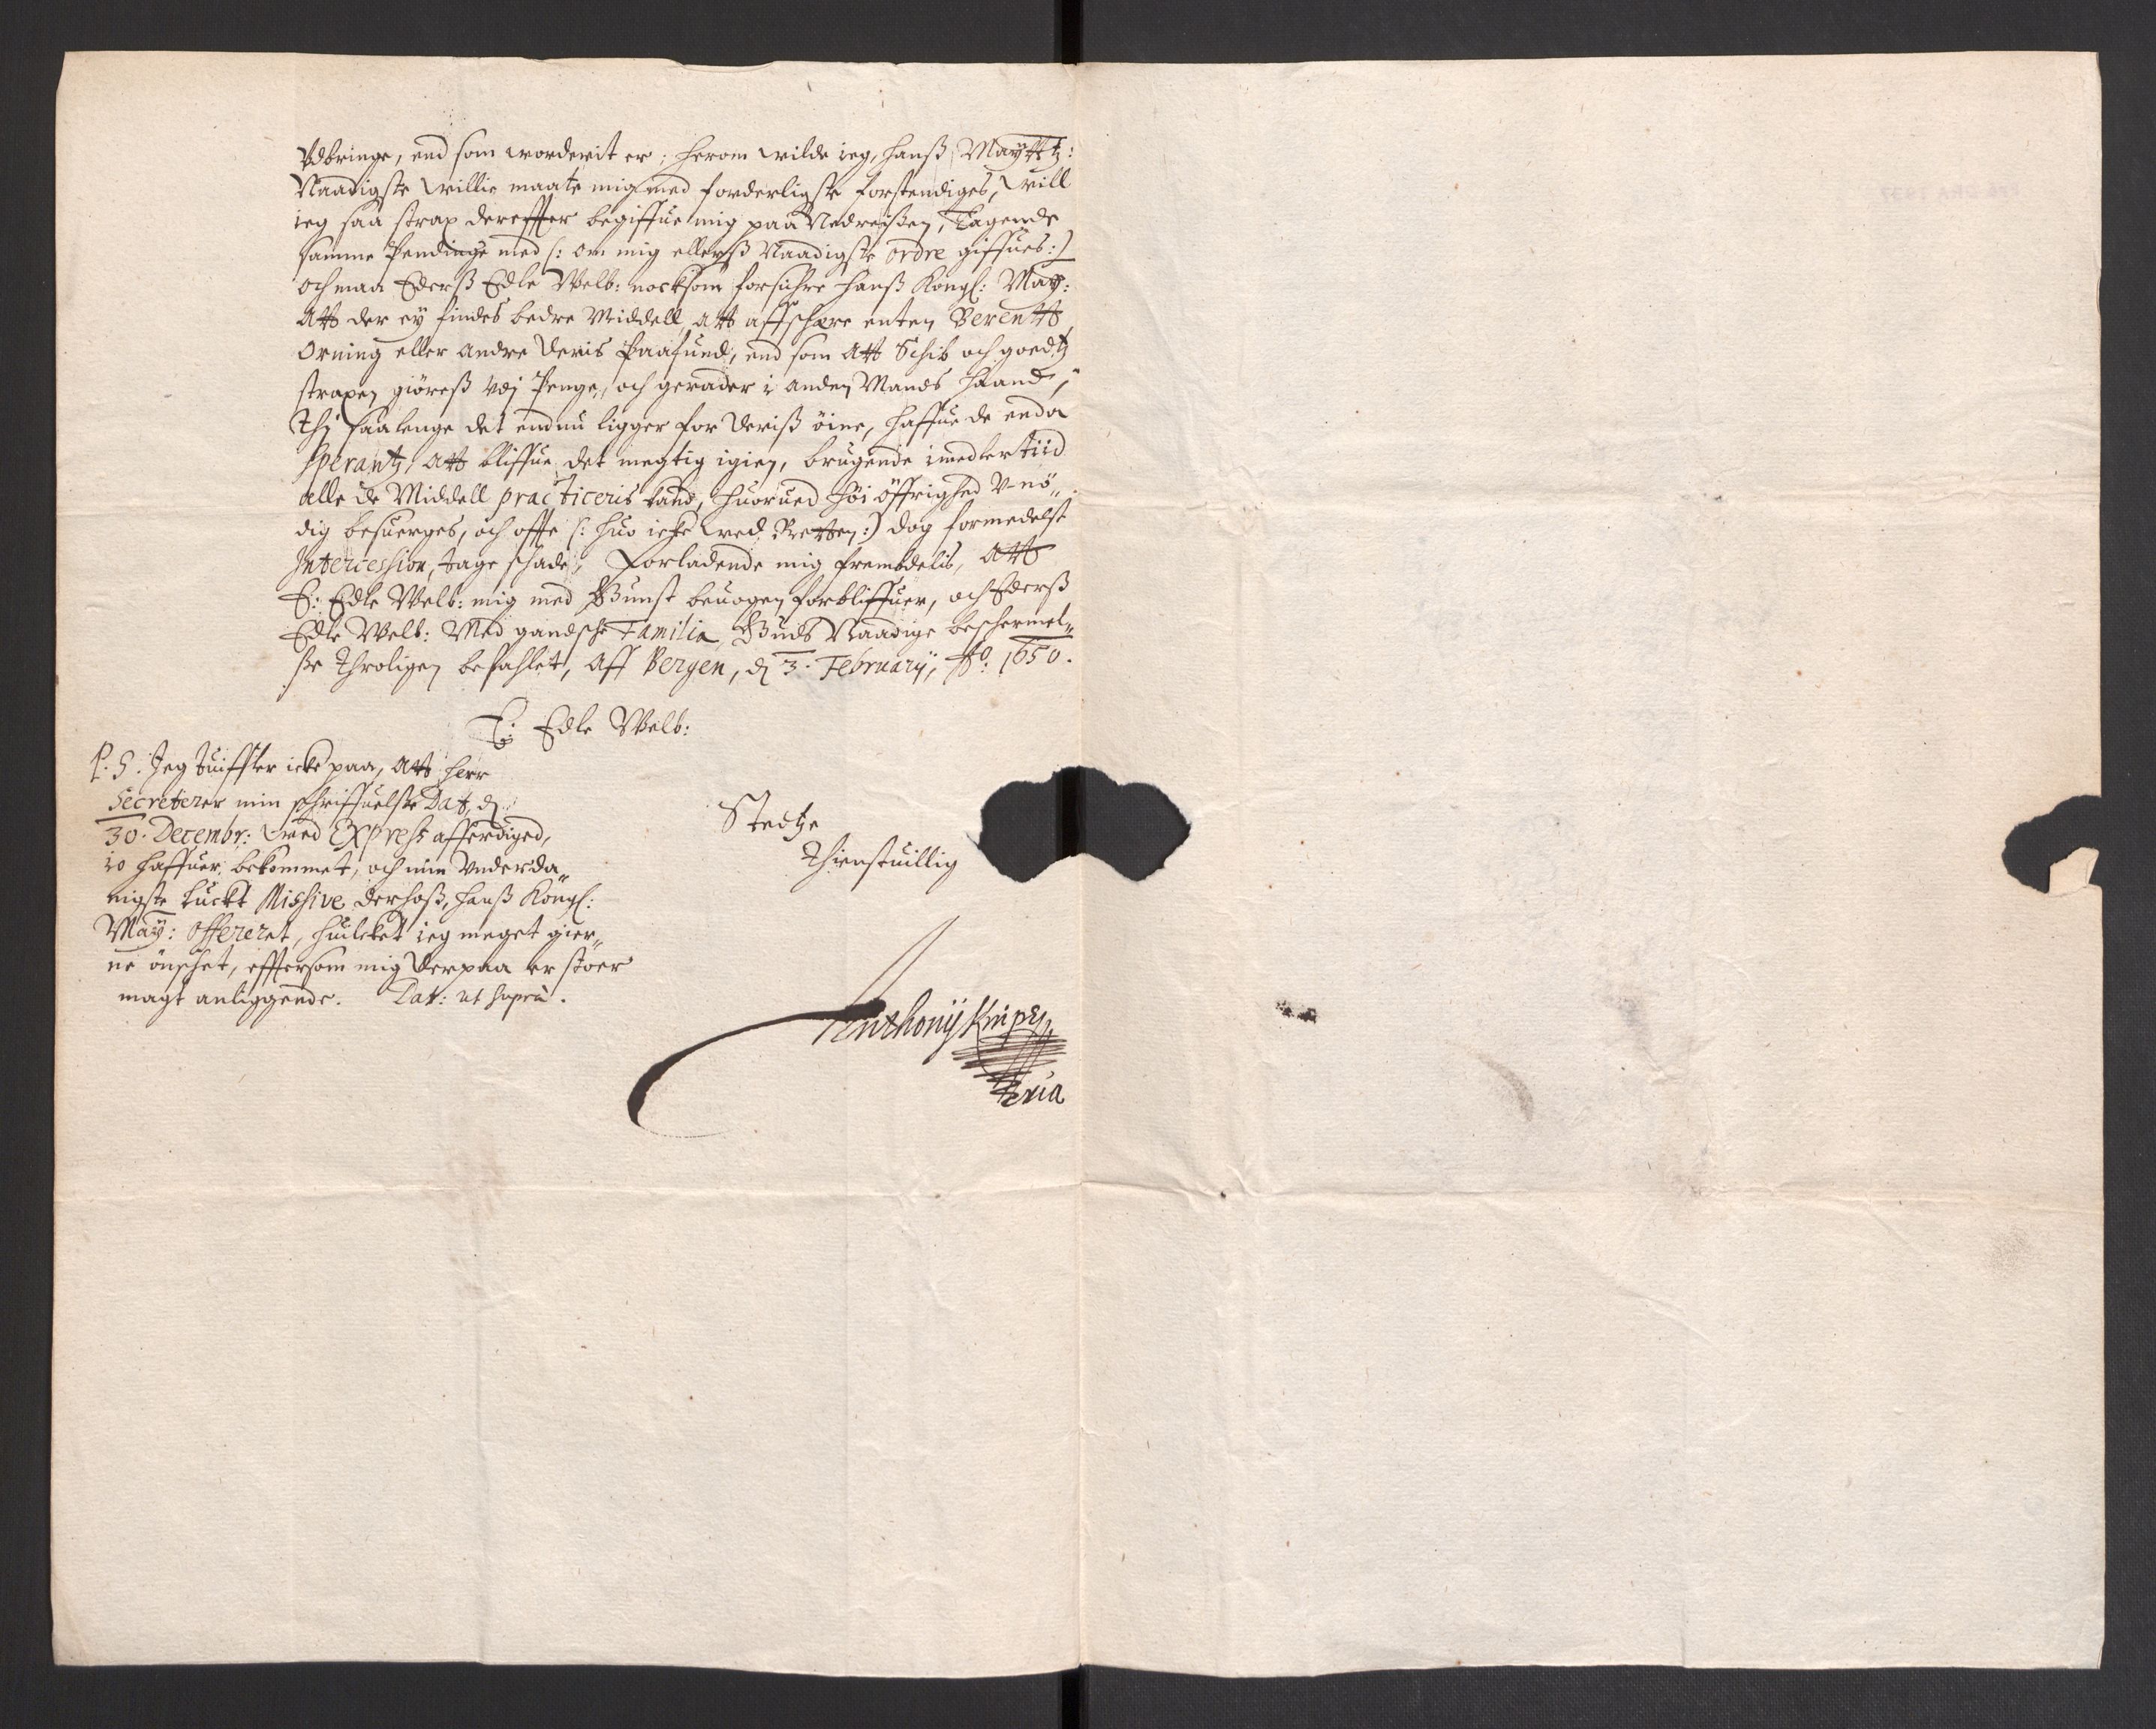 Vdbringe, end som worderit er; herom wilde ieg, hanß Maÿttz:
Naadigste willie maate mig med forderligste forstendiges, will
ieg saa strax derefter begiffue mig paa Nedreißen, Tagende
samme Pendinge med (: om mig ellerß Naadigste ordre giffues:)
och maa Ederß Edle Welb: nocksom forsichre hanß Kongl: Maÿ:
Att der eÿ findes bedre Middell, att affschære enten Berentts
Orning eller andre deris Paafund, end som Att Schib och goedtz
straxen giöreß vdj Penge, och gerader i anden Mands haand,
Thj saalenge det endnu ligger for deriß öine, haffue de enda
sperantz, Att bliffue det megtig igien, brugende imedlertiid
alle de Middell practiceris kand, huorued höi öffrighed V-nö„
dig besuerges, och offte (: huo icke wed Retten:) dog formedelst
Intercession, tage schade; Forladende mig frembdelis, Att
E: Edle Welb: mig med Gunst beuogen forbliffuer, och Ederß
Edle Welb: Med gandsche Familia, Guds Naadige beschermel„
ße throligen befahlet, Aff Bergen, d 3. Februarÿ, Ao: 1650.
E: Edle Welb:
P. S. Jeg tuiffler icke paa, Att herr
Secreterer min schriffuelße Dat, d
30. Decembr: wed Express afferdiged,
io haffuer bekommet, och min vnderda„
nigste luckt Missive derhoß, hanß Kongl:
Maÿ: offereret, huilcket ieg meget gier„
ne önschet, efftersom mig derpaa er stoer
magt anliggende. Dat: ut supra.
Stedtze
Thienstuillig
Anthonÿ Knip